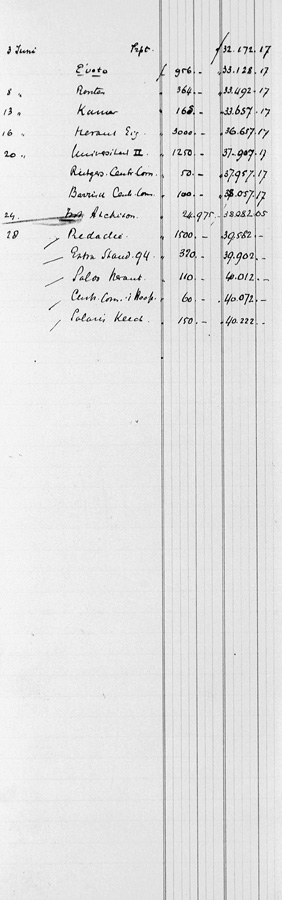 3 Juni Sept. f 32.172.17
Evoto f 956.- " 33.128.17
8 " Renten " 364.- " 33.492.17
13 " Kamer " 165.- " 33.657.17
16 " Heraut Eig. " 3000.- " 36.657.17
20 " Universiteit II " 1250.- " 37.907.17
Rutgers. Centr. Com. " 50.- " 37.957.17
Centr. Com. " 100.- " 38.057.17
24 " Archiven. " 24.975 " 38.082.05
28 Redactie. " 1500.- " 39.582.-
Extra Stand. 94. " 320.- " 39.902.-
Heraut. " 110.- " 40.012.-
Centr. Com. " 60.- " 40.072.-
Salaris " 150.- " 40.222.-